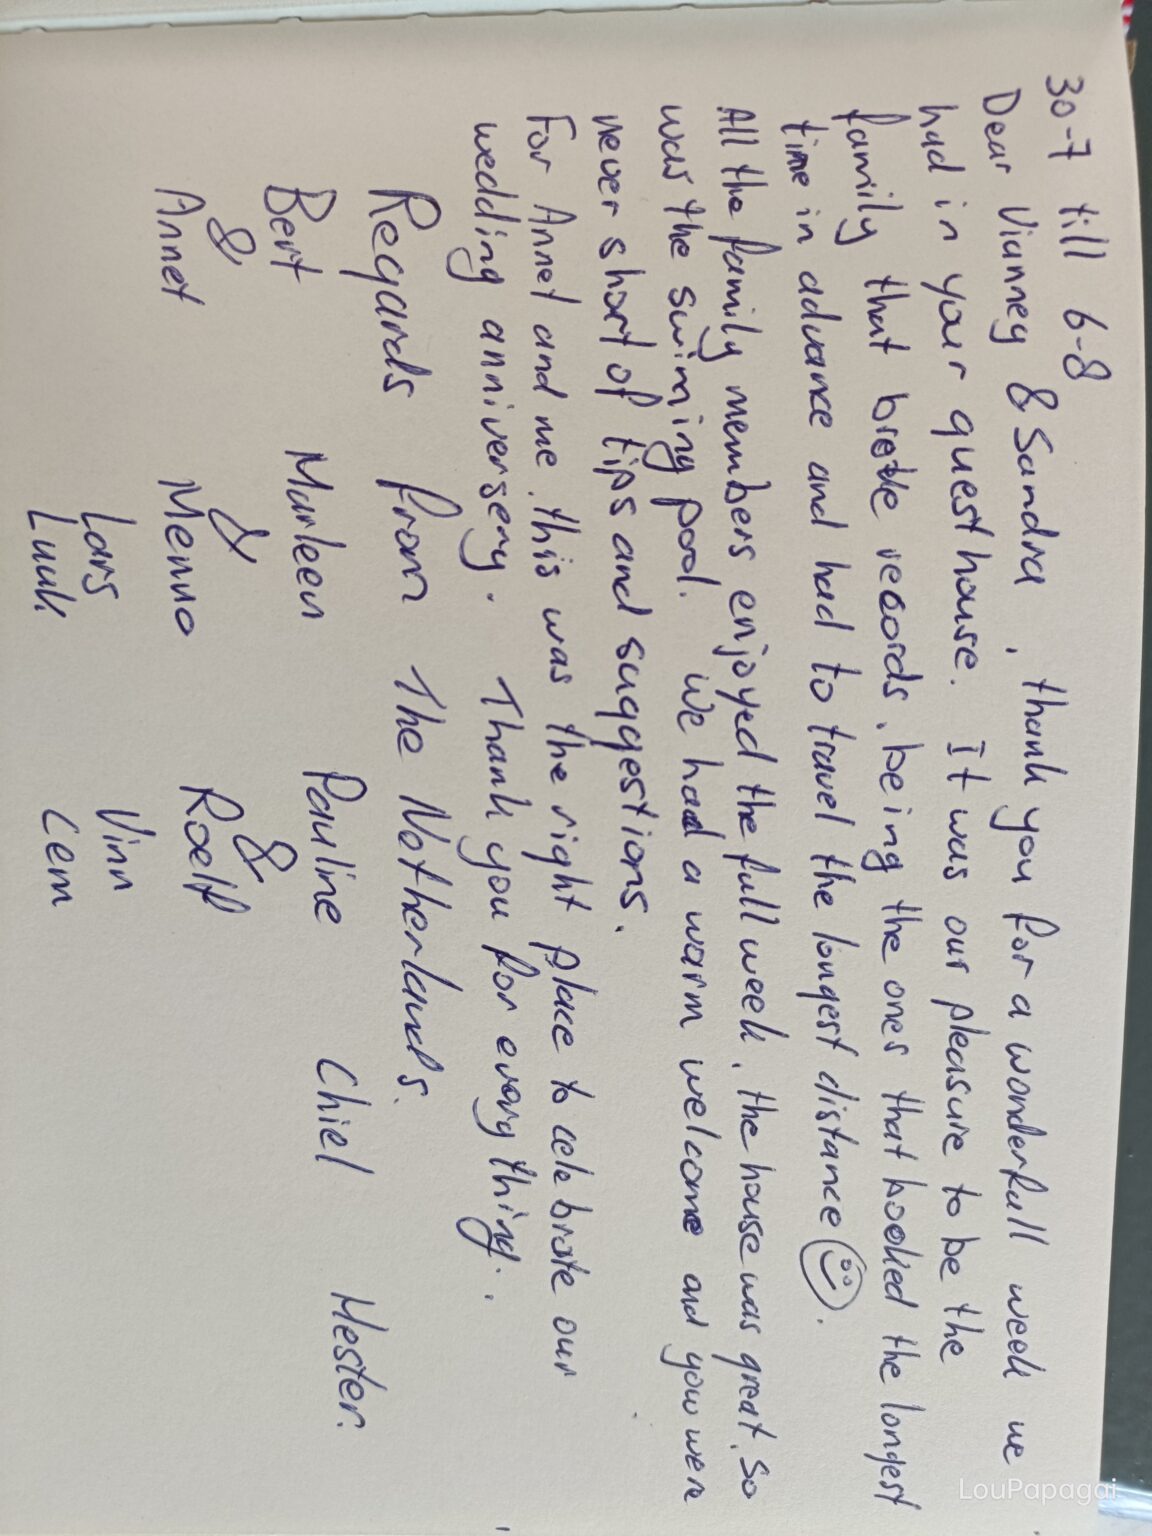 30-7 till 6-8
Dear Vianney & Sandra, thank you for a wonderfull week we
had in your guesthouse. It was our pleasure to be the
family that broke records, being the ones that booked the longest
time in advance and had to travel the longest distance ☺.
All the family members enjoyed the full week, the house was great, so
was the swiming pool. We had a warm welcome and you were
never short of tips and suggestions.
For Annet and me, this was the right place to celebrate our
wedding anniversery. Thank you for every thing.
Regards from The Netherlands.
Bert Marleen Pauline Chiel Hester.
& & &
Annet Menno Roelf
Lars Vinn
Luuk Cem
LouPapagai